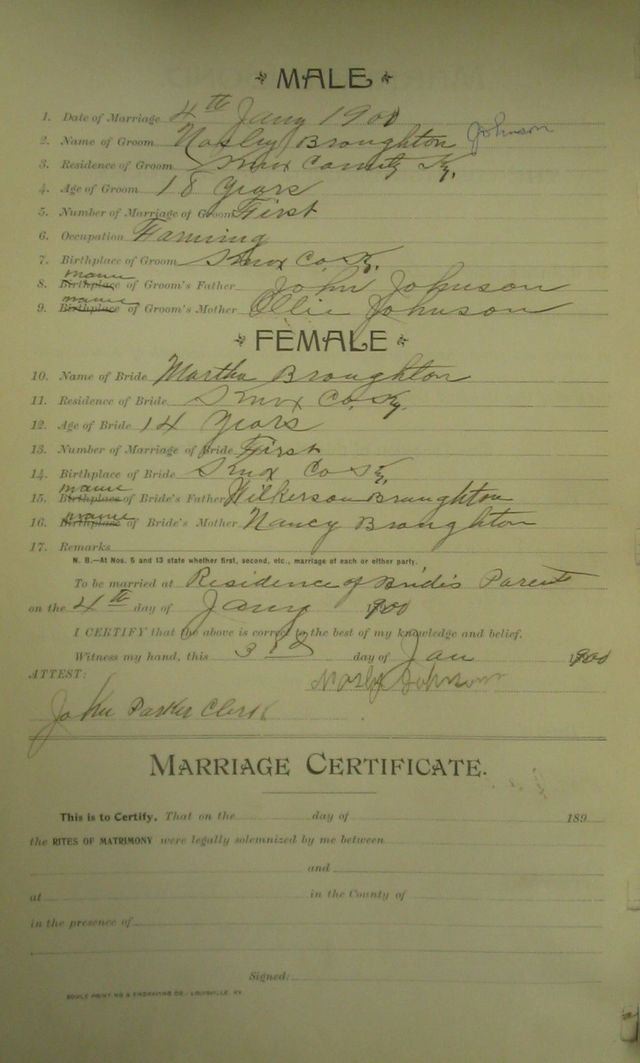 MALE
1. Date of Marriage 4th Jany 1900
2. Name of Groom Mosby Broughton Johnson
3. Residence of Groom Knox County Ky.
4. Age of Groom 18 years
5. Number of Marriage of Groom First
6. Occupation Farming
7. Birthplace of Groom Knox Co. Ky.
8. Birthplace name of Groom's Father John Johnson
9. Birthplace name of Groom's Mother Ollie Johnson
FEMALE
10. Name of Bride Martha Broughton
11. Residence of Bride Knox Co. Ky.
12. Age of Bride 14 years
13. Number of Marriage of Bride First
14. Birthplace of Bride Knox Co Ky.
15. Birthplace name of Bride's Father Wilkerson Broughton
16. Birthplace name of Bride's Mother Nancy Broughton
17. Remarks
N. B.—At Nos. 5 and 13 state whether first, second, etc., marriage of each or either party.
To be married at Residence of Brides Parent
on the 4th day of Jany 1900
I CERTIFY that the above is correct to the best of my knowledge and belief.
Witness my hand, this 3rd day of Jan 1900
ATTEST: Mosby Johnson
John Parker Clerk
MARRIAGE CERTIFICATE.
This is to Certify, That on the day of 189
the RITES OF MATRIMONY were legally solemnized by me between
and
at in the County of
in the presence of
Signed:
PRINTING & ENGRAVING CO., LOUISVILLE, KY.